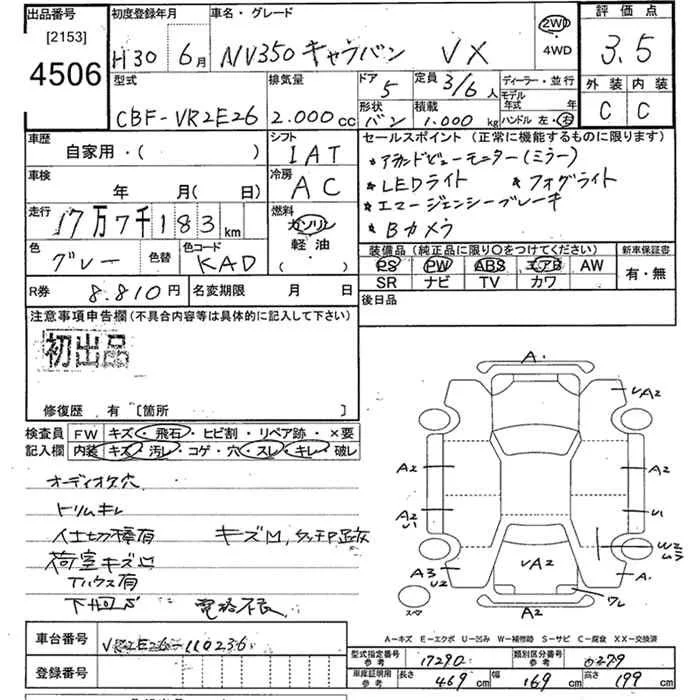 出品番号
[2153]
4506
初度登録年月
H30年 6月
車名・グレード
NV350 キャラバン VX
2WD
・
4WD
評価点
3.5
外装 内装
C C
型式
CBF-VR2E26
排気量
2.000cc
ドア
5
形状
バン
定員
3/6人
積載
1.000kg
ディーラー・並行
モデル
年式 年
ハンドル 左・右
車歴
自家用・( )
シフト
IAT
車検
年 月( 日)
冷房
AC
走行
17万7千183km
燃料
ガソリン
軽油
( )
色
グレー
色替
色コード
KAD
セールスポイント(正常に機能するものに限ります)
*アラウンドビューモニター(ミラー)
*LEDライト *フォグライト
*エマージェンシーブレーキ
*Bカメラ
装備品(純正品に限り○をつけてください)
PS PW ABS エアB AW
SR ナビ TV カワ
新車保証書
有・無
R券 8.810円
名変期限 月 日
後日品
注意事項申告欄(不具合内容等は具体的に記入して下さい)
初出品
修復歴 有 [箇所 ]
検査員
記入欄
FW キズ・飛石・ヒビ割・リペア跡・×要
内装 キズ・汚レ・コゲ・穴・スレ・キレ・破レ
オーディオ欠
トリムキレ
仕切棒有 キズM,タッチP
荷室キズM
下回サビ
A.
VA2
A2
A2
A2
U1
U1
W2
A3
U2
A.
VA2
A2
スペア
A-キズ E-エクボ U-凹み W-補修跡 S-サビ C-腐食 XX-交換済
車台番号
VR2E26-110236
登録番号
型式指定番号
参考
17290
類別区分番号
参考
0279
車庫証明用
参考
長さ 469cm
幅 169cm
高さ 199cm